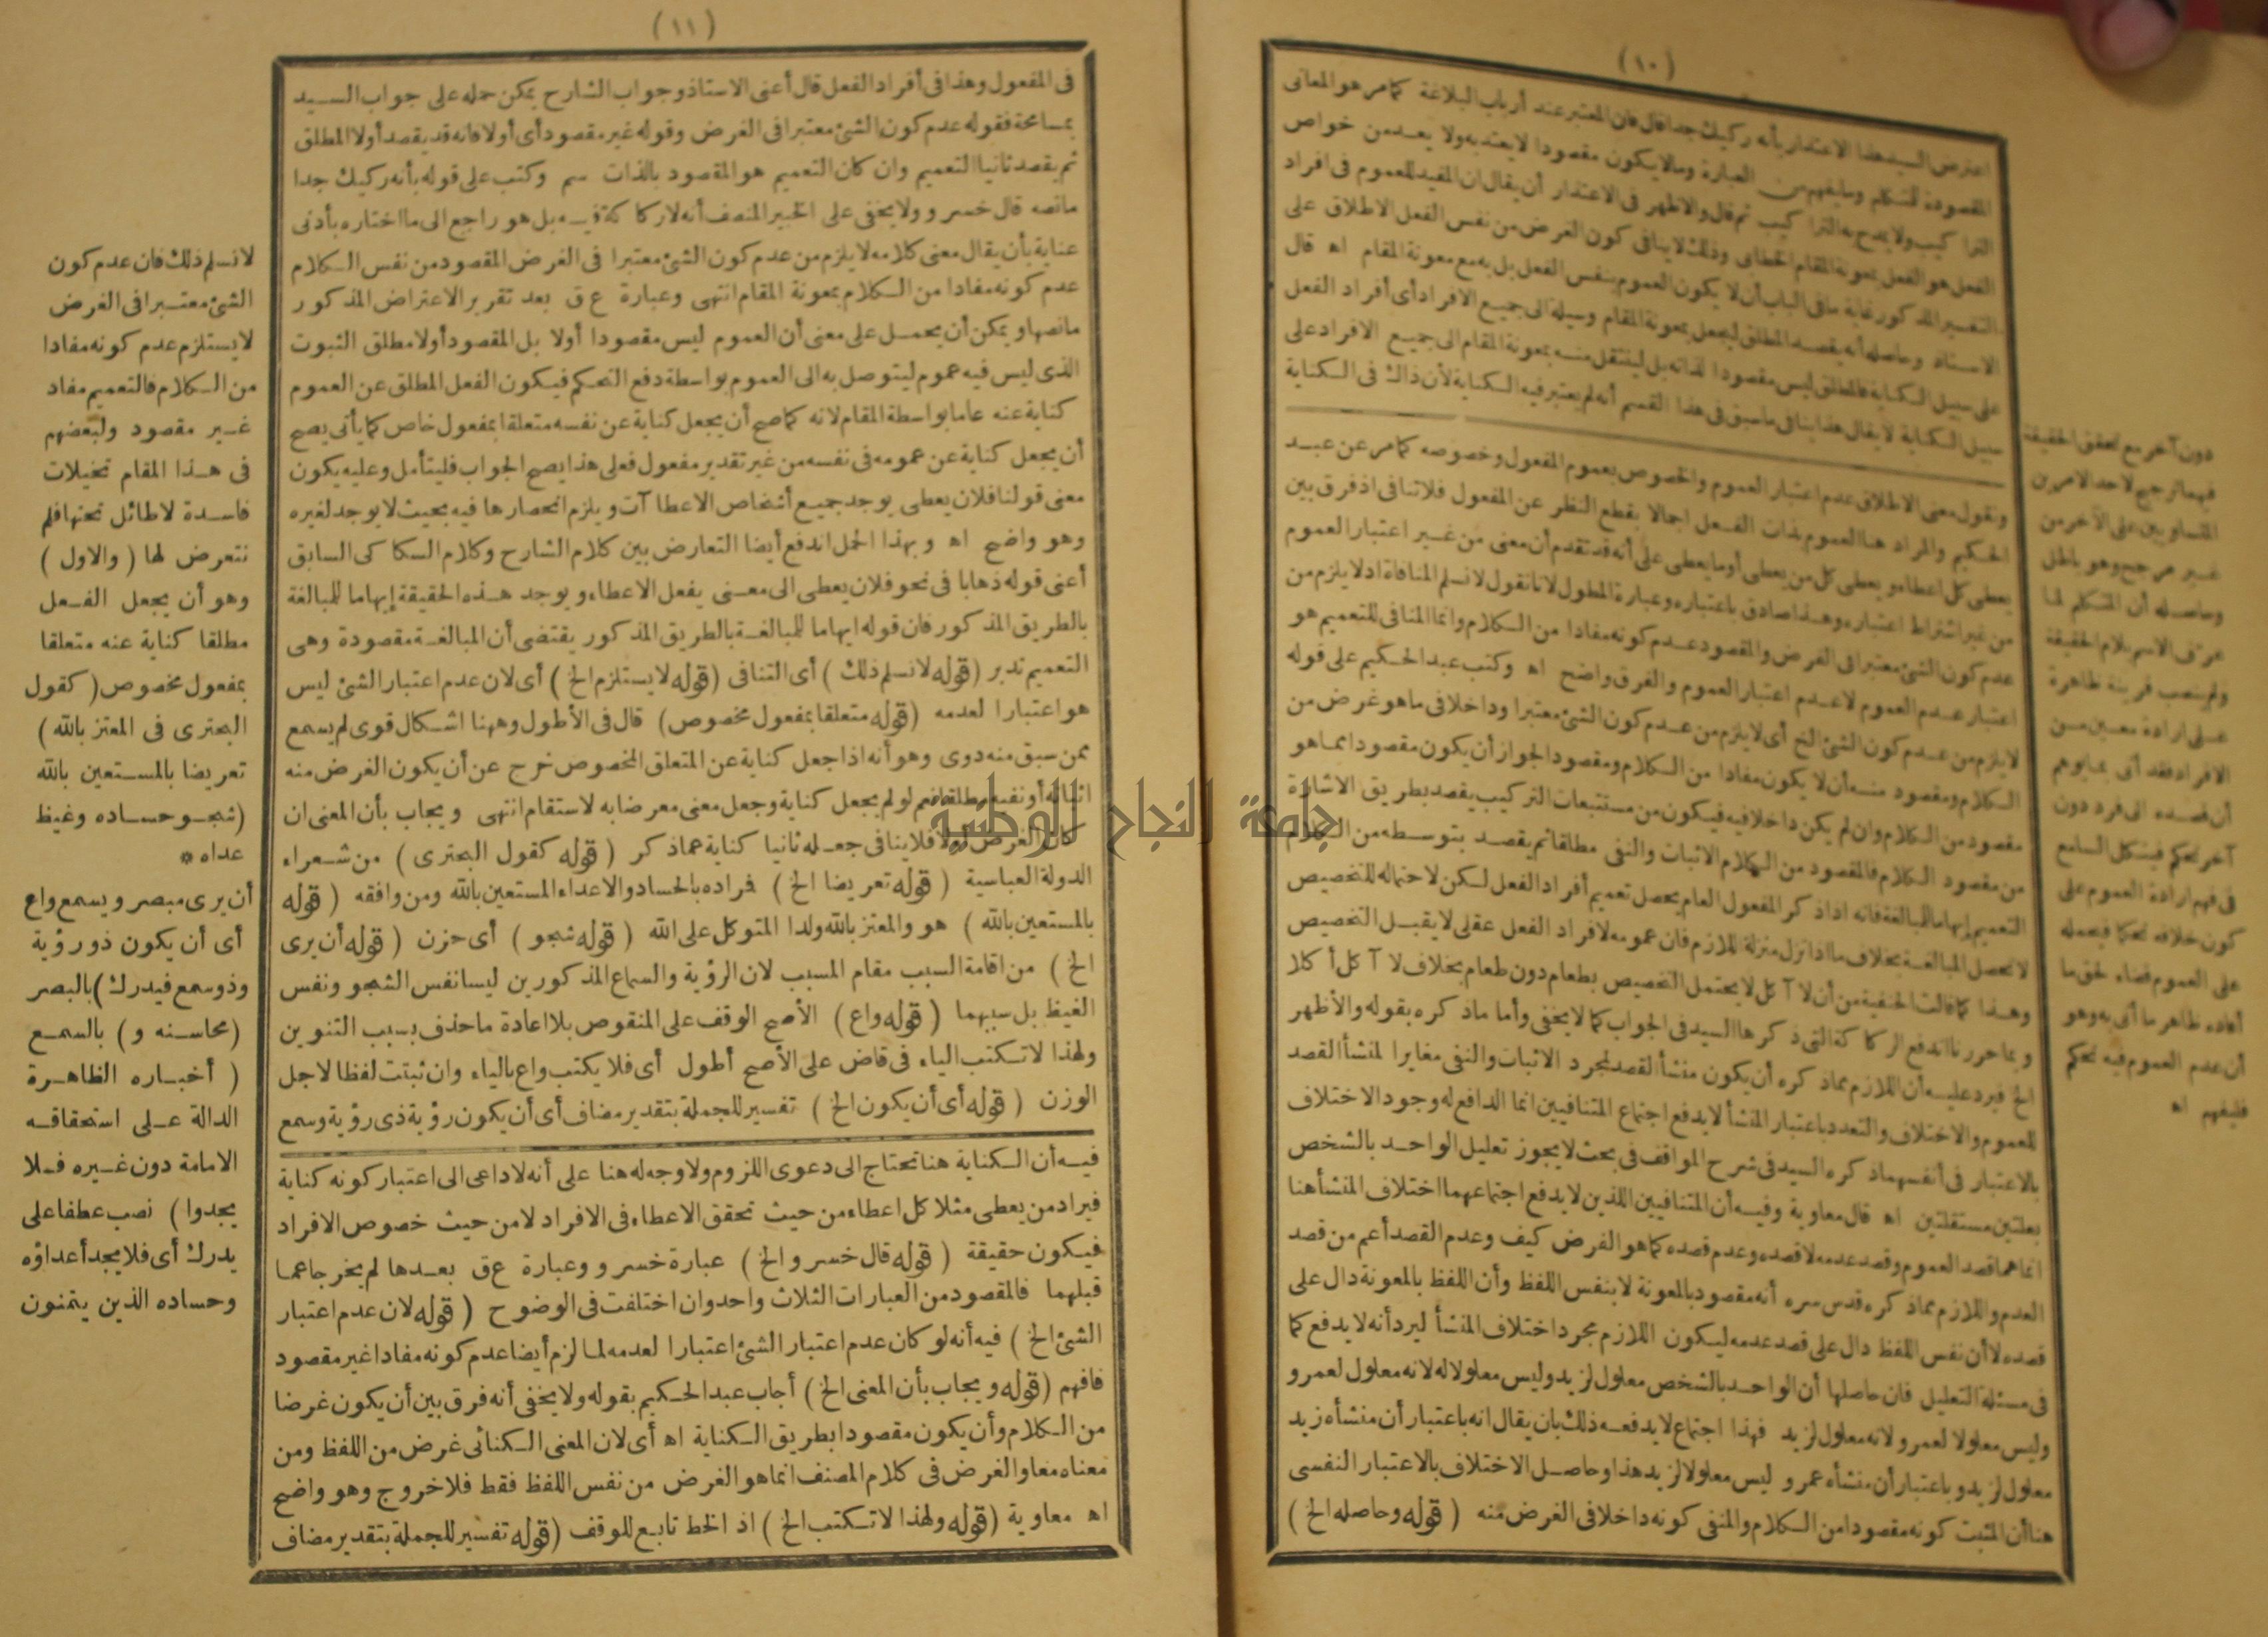 (١٠)
اعترض السيد هذا الاعتذار بأنه ركيك جدا قال فان المعتبر عند أرباب البلاغة كما مر هو المعانى
المقصودة للمتكلم وما يفهم من العبارة ومالا يكون مقصودا لا يعتد به ولا يعد من خواص
التراكيب ولا يمدح به التراكيب ثم قال والاظهر فى الاعتذار أن يقال ان المفيد للعموم فى افراد
الفعل هو الفعل بمعونة المقام الخطابى وذلك لا ينافى كون الغرض من نفس الفعل الاطلاق على
التفسير المذكور غاية ما فى الباب أن لا يكون العموم بنفس الفعل بل به مع معونة المقام اه قال
الاستاذ وحاصله أنه يقصد المطلق ليجعل بمعونة المقام وسيلة الى جميع الافراد أى أفراد الفعل
على سبيل الكناية فالمطلق ليس مقصودا لذاته بل لينتقل منه بمعونة المقام الى جميع الافراد على
سبيل الكناية لا يقال هذا ينافى ما سبق فى هذا القسم أنه لم يعتبر فيه الكناية لأن ذاك فى الكناية
ونقول معنى الاطلاق عدم اعتبار العموم والخصوص بعموم المفعول وخصوصه كما مر عن عبد
الحكيم والمراد هنا العموم بذات الفعل اجمالا بقطع النظر عن المفعول فلا تنافى اذ فرق بين
يعطى كل اعطاء ويعطى كل من يعطى أو ما يعطى على أنه قد تقدم أن معنى من غير اعتبار العموم
من غير اشتراط اعتباره وهذا صادق باعتباره وعبارة المطول لانا نقول لا نسلم المنافاة اذ لا يلزم من
عدم كون الشئ معتبرا فى الغرض والمقصود عدم كونه مفادا من الكلام وانما المنافى للتعميم هو
اعتبار عدم العموم لا عدم اعتبار العموم والفرق واضح اه وكتب عبد الحكيم على قوله
لا يلزم من عدم كون الشئ الخ أى لا يلزم من عدم كون الشئ معتبرا وداخلا فى ما هو غرض من
الكلام ومقصود منه أن لا يكون مفادا من الكلام ومقصودا لجواز أن يكون مقصودا مما هو
مقصود من الكلام وان لم يكن داخلا فيه فيكون من مستتبعات التركيب يقصد بطريق الاشارة
من مقصود الكلام فالمقصود من الكلام الاثبات والنفى مطلقا ثم يقصد بتوسطه من الكلام
التعميم إيهاما للمبالغة فانه اذا ذكر المفعول العام يحصل تعميم أفراد الفعل لكن لاحتماله للتخصيص
لا تحصل المبالغة بخلاف ما اذا نزل منزلة اللازم فان عمومه لافراد الفعل عقلى لا يقبل التخصيص
وهذا كما قالت الحنفية من أن لا آكل لا يحتمل التخصيص بطعام دون طعام بخلاف لا آكل أكلا
وبما حررنا اندفع الركاكة التى ذكرها السيد فى الجواب كما لا يخفى وأما ما ذكره بقوله والأظهر
الخ فيرد عليه أن اللازم مما ذكره أن يكون منشأ القصد لمجرد الاثبات والنفى مغايرا لمنشأ القصد
للعموم والاختلاف والتعدد باعتبار المنشأ لا يدفع اجتماع المتنافيين انما الدافع له وجود الاختلاف
بالاعتبار فى أنفسهما ذكره السيد فى شرح المواقف فى بحث لا يجوز تعليل الواحد بالشخص
بعلتين مستقلتين اه قال معاوية وفيه أن المتنافيين اللذين لا يدفع اجتماعهما اختلاف المنشأ هنا
انما هما قصد العموم وقصد عدمه لا قصده وعدم قصده كما هو الفرض كيف وعدم القصد أعم من قصد
العدم واللازم مما ذكره قدس سره أنه مقصود بالمعونة لا بنفس اللفظ وأن اللفظ بالمعونة دال على
قصده لا أن نفس اللفظ دال على قصد عدمه ليكون اللازم مجرد اختلاف المنشأ ليرد أنه لا يدفع كما
فى مسئلة التعليل فان حاصلها أن الواحد بالشخص معلول لزيد وليس معلولا له لانه معلول لعمرو
وليس معلولا لعمرو لانه معلول لزيد فهذا اجتماع لا يدفعه ذلك بان يقال انه باعتبار أن منشأه زيد
معلول لزيد وباعتبار أن منشأه عمرو ليس معلولا لزيد هذا وحاصل الاختلاف بالاعتبار النفسى
هنا أن المثبت كونه مقصودا من الكلام والمنفى كونه داخلا فى الغرض منه (قوله وحاصله الخ)
دون آخر مع تحقق الحقيقة
فيهما ترجيح لاحد الامرين
المتساويين على الآخر من
غير مرجح وهو باطل
وحاصله أن المتكلم لما
عرف الاسم بلام الحقيقة
ولم ينصب قرينة ظاهرة
على ارادة معين من
الافراد فقد أتى بما يوهم
أن قصده الى فرد دون
آخر تحكم فيتكل السامع
فى فهم ارادة العموم على
كون خلافه تحكما فيحمله
على العموم قضاء لحق ما
أفاده ظاهر ما أتى به وهو
أن عدم العموم فيه تحكم
فليفهم اه
(١١)
فى المفعول وهذا فى أفراد الفعل قال أعنى الاستاذ وجواب الشارح يمكن حمله على جواب السيد
بمسامحة فقوله عدم كون الشئ معتبرا فى الغرض وقوله غير مقصود أى أولا فانه قد يقصد أولا المطلق
ثم يقصد ثانيا التعميم وان كان التعميم هو المقصود بالذات سم وكتب على قوله بأنه ركيك جدا
مانصه قال خسرو ولا يخفى على الخبير المنصف أنه لا ركاكة فيه بل هو راجع الى ما اختاره بأدنى
عناية بأن يقال معنى كلامه لا يلزم من عدم كون الشئ معتبرا فى الغرض المقصود من نفس الكلام
عدم كونه مفادا من الكلام بمعونة المقام انتهى وعبارة ع ق بعد تقرير الاعتراض المذكور
مانصها ويمكن أن يحمل على معنى أن العموم ليس مقصودا أولا بل المقصود أولا مطلق الثبوت
الذى ليس فيه عموم ليتوصل به الى العموم بواسطة دفع التحكم فيكون الفعل المطلق عن العموم
كناية عنه عاما بواسطة المقام لانه كما صح أن يجعل كناية عن نفسه متعلقا بمفعول خاص كما يأتى يصح
أن يجعل كناية عن عمومه فى نفسه من غير تقدير مفعول فعلى هذا يصح الجواب فليتأمل وعليه يكون
معنى قولنا فلان يعطى يوجد جميع أشخاص الاعطاآت ويلزم انحصارها فيه بحيث لا يوجد لغيره
وهو واضح اه وبهذا الحمل اندفع أيضا التعارض بين كلام الشارح وكلام السكاكى السابق
أعنى قوله ذهابا فى نحو فلان يعطى الى معنى يفعل الاعطاء ويوجد هذه الحقيقة إيهاما للمبالغة
بالطريق المذكور فان قوله ايهاما للمبالغة بالطريق المذكور يقتضى أن المبالغة مقصودة وهى
التعميم تدبر (قوله لا نسلم ذلك) أى التنافى (قوله لا يستلزم الخ) أى لان عدم اعتبار الشئ ليس
هو اعتبارا لعدمه (قوله متعلقا بمفعول مخصوص) قال فى الأطول وههنا اشكال قوى لم يسمع
ممن سبق منه دوى وهو أنه اذا جعل كناية عن المتعلق المخصوص خرج عن أن يكون الغرض منه
اثباته أو نفيه مطلقا نعم لو لم يجعل كناية وجعل معنى معرضا به لاستقام انتهى ويجاب بأن المعنى ان
كان الغرض أولا فلا ينافى جعله ثانيا كناية عما ذكر (قوله كقول البحترى) من شعراء
الدولة العباسية (قوله تعريضا الخ) فراده بالحساد والاعداء المستعين بالله ومن وافقه (قوله
بالمستعين بالله) هو والمعتز بالله ولدا المتوكل على الله (قوله شجو) أى حزن (قوله أن يرى
الخ) من اقامة السبب مقام المسبب لان الرؤية والسماع المذكورين ليسا نفس الشجو ونفس
الغيظ بل سببهما (قوله واع) الأصح الوقف على المنقوص بلا اعادة ما حذف بسبب التنوين
ولهذا لا تكتب الياء فى قاض على الأصح أطول أى فلا يكتب واع بالياء وان ثبتت لفظا لاجل
الوزن (قوله أى أن يكون الخ) تفسير للجملة بتقدير مضاف أى أن يكون رؤية ذى رؤية وسمع
فيه أن الكناية هنا تحتاج الى دعوى اللزوم ولا وجه له هنا على أنه لا داعى الى اعتبار كونه كناية
فيراد من يعطى مثلا كل اعطاء من حيث تحقق الاعطاء فى الافراد لا من حيث خصوص الافراد
فيكون حقيقة (قوله قال خسرو الخ) عبارة خسرو وعبارة ع ق بعدها لم يخرجا عما
قبلهما فالمقصود من العبارات الثلاث واحد وان اختلفت فى الوضوح (قوله لان عدم اعتبار
الشئ الخ) فيه أنه لو كان عدم اعتبار الشئ اعتبارا لعدمه لما لزم أيضا عدم كونه مفادا غير مقصود
فافهم (قوله ويجاب بأن المعنى الخ) أجاب عبد الحكيم بقوله ولا يخفى أنه فرق بين أن يكون غرضا
من الكلام وأن يكون مقصودا بطريق الكناية اه أى لان المعنى الكنائى غرض من اللفظ ومن
معناه معا والغرض فى كلام المصنف انما هو الغرض من نفس اللفظ فقط فلا خروج وهو واضح
اه معاوية (قوله ولهذا لا تكتب الخ) اذ الخط تابع للوقف (قوله تفسير للجملة بتقدير مضاف
لا نسلم ذلك فان عدم كون
الشئ معتبرا فى الغرض
لا يستلزم عدم كونه مفادا
من الكلام فالتعميم مفاد
غير مقصود ولبعضهم
فى هذا المقام تخيلات
فاسدة لا طائل تحتها فلم
نتعرض لها (والاول)
وهو أن يجعل الفعل
مطلقا كناية عنه متعلقا
بمفعول مخصوص (كقول
البحترى فى المعتز بالله)
تعريضا بالمستعين بالله
(شجو حساده وغيظ
عداه *
أن يرى مبصر ويسمع واع
أى أن يكون ذو رؤية
وذو سمع فيدرك) بالبصر
(محاسنه و) بالسمع
(أخباره الظاهرة
الدالة على استحقاقه
الامامة دون غيره فلا
يجدوا) نصب عطفا على
يدرك أى فلا يجد أعداؤه
وحساده الذين يتمنون
جامعة النجاح الوطنية